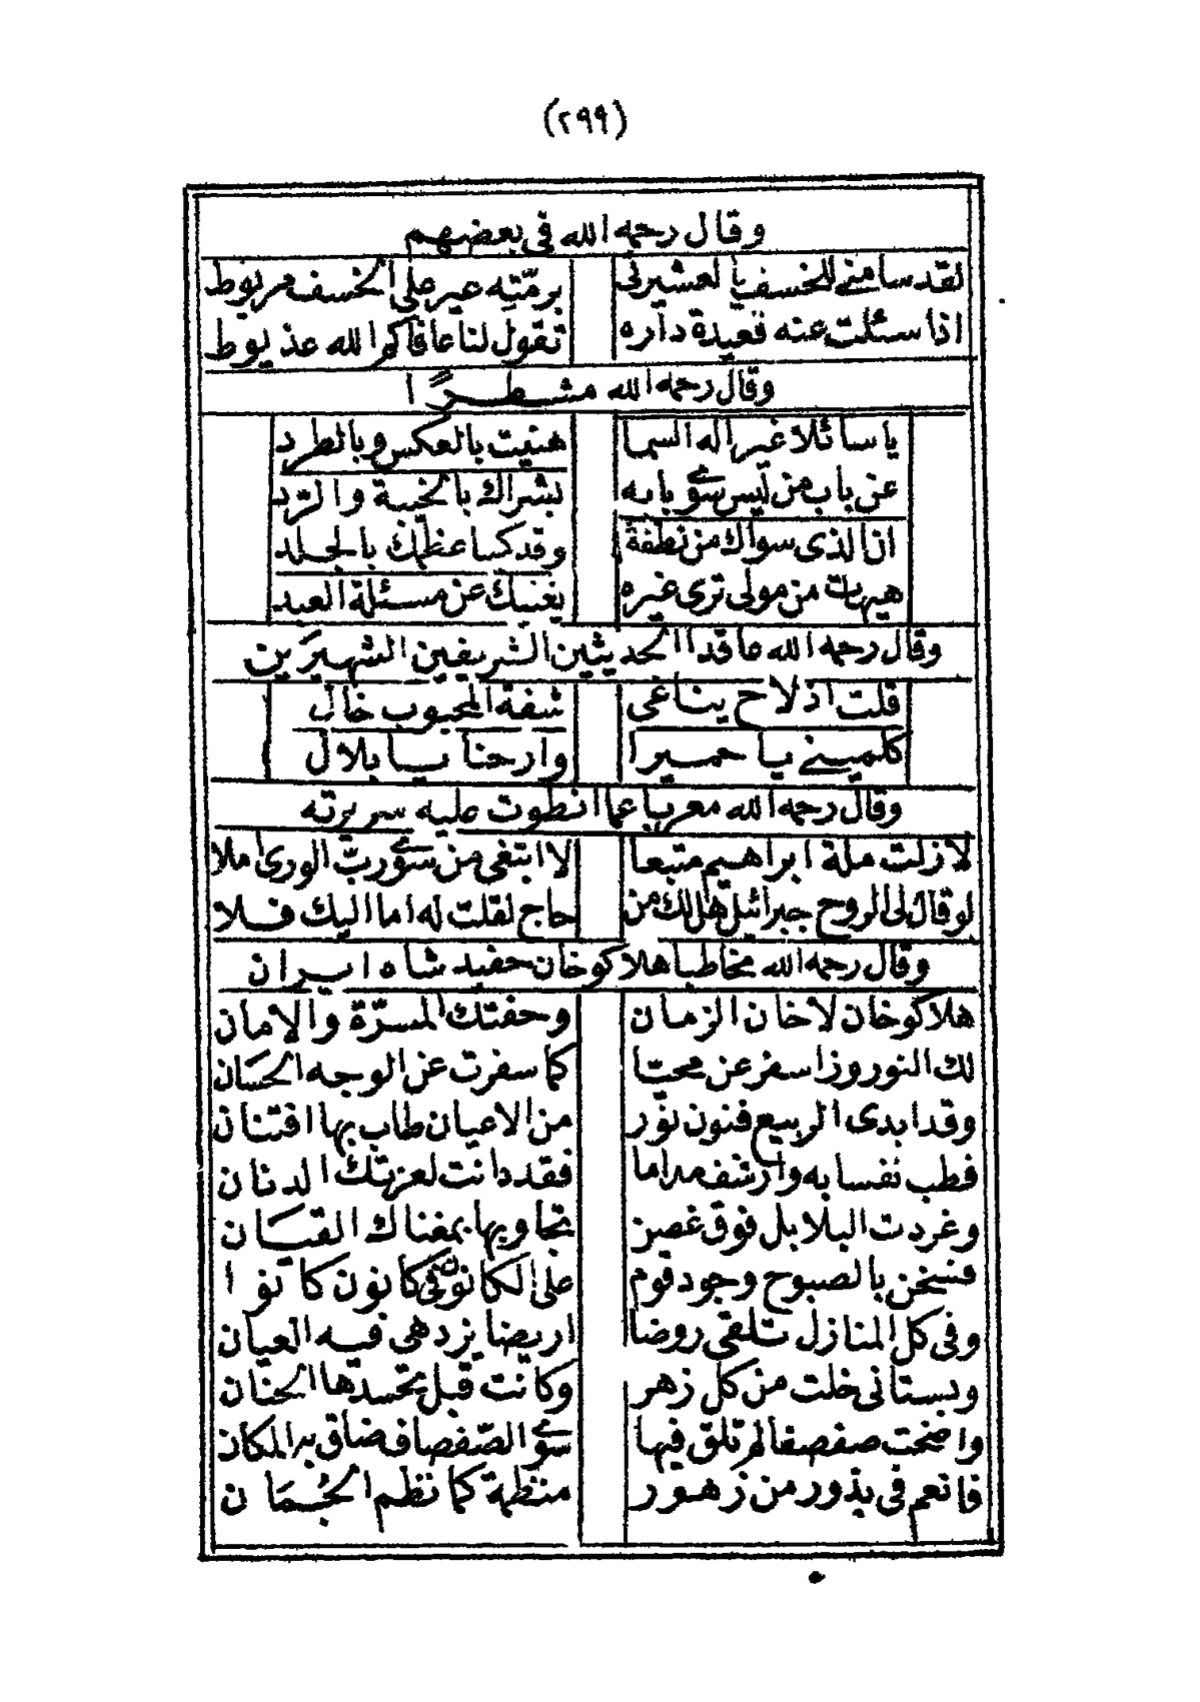 (٢٩٩)
وقال رحمه الله فى بعضهم
لقد سامنى للخسف يا لعشيرتى برمّته عير على الخسف مربوط
اذا سئلت عنه قعيدة داره تقول لنا عافاكم الله عذيوط
وقال رحمه الله مشطرًا
يا سائلا غير اله السما هنيت بالعكس وبالطرد
عن باب من ليس سوى بابه بشراك بالخيبة والردّ
ان الذى سواك من نطفة وقد كسا عظمك بالجلد
هيهات من مولى ترى غيره يغنيك عن مسئلة العبد
وقال رحمه الله عاقدا الحديثين الشريفين الشهيرين
قلت اذ لاح يناغى شفة المحبوب خال
كلمينى يا حميرا وارحنا يا بلال
وقال رحمه الله معربا عما انطوت عليه سريرته
لازلت ملة ابراهيم متبعا لا ابتغى من سوى ربّ الورى املا
لو قال لى الروح جبرائيل هل لك من حاج لقلت له اما اليك فلا
وقال رحمه الله مخاطبا هلاكوخان حفيد شاه ايران
هلاكوخان لاخان الزمان وحفتك المسرّة والامان
لك النوروز اسفر عن محيّا كما سفرت عن الوجه الحسان
وقد ابدى الربيع فنون نور من الاعيان طاب بها افتنان
فطب نفسا به وارشف مداما فقد دانت لعزتك الدنان
وغردت البلابل فوق غصن تجاوبها بمغناك القيان
فسخن بالصبوح وجود قوم على الكانون فى كانون كانوا
وفى كل المنازل تلقى روضا اريضا يزدهى فيه العيان
وبستانى خلت من كل زهر وكانت قبل تحسدها الجنان
واضحت صفصفا لم تلق فيها سوى الصّفصاف ضاق به المكان
فانعم فى بذور من زهور منظمة كما نظم الجُمان